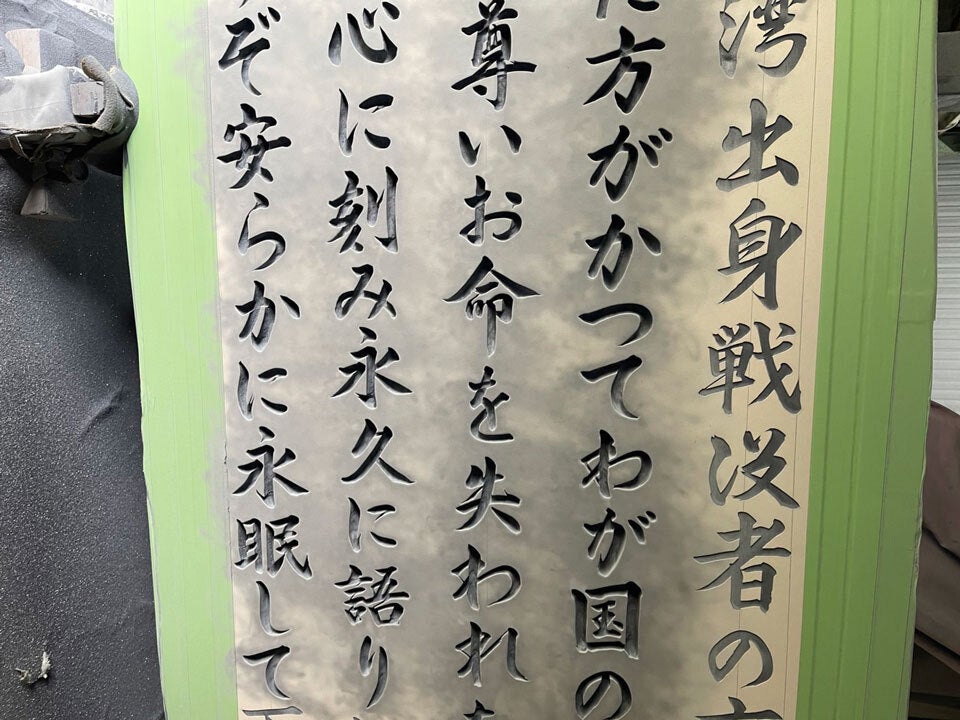 湾出身戦没者の
た方がかつてわが国の
尊いお命を失われ
心に刻み永久に語り
ぞ安らかに永眠して